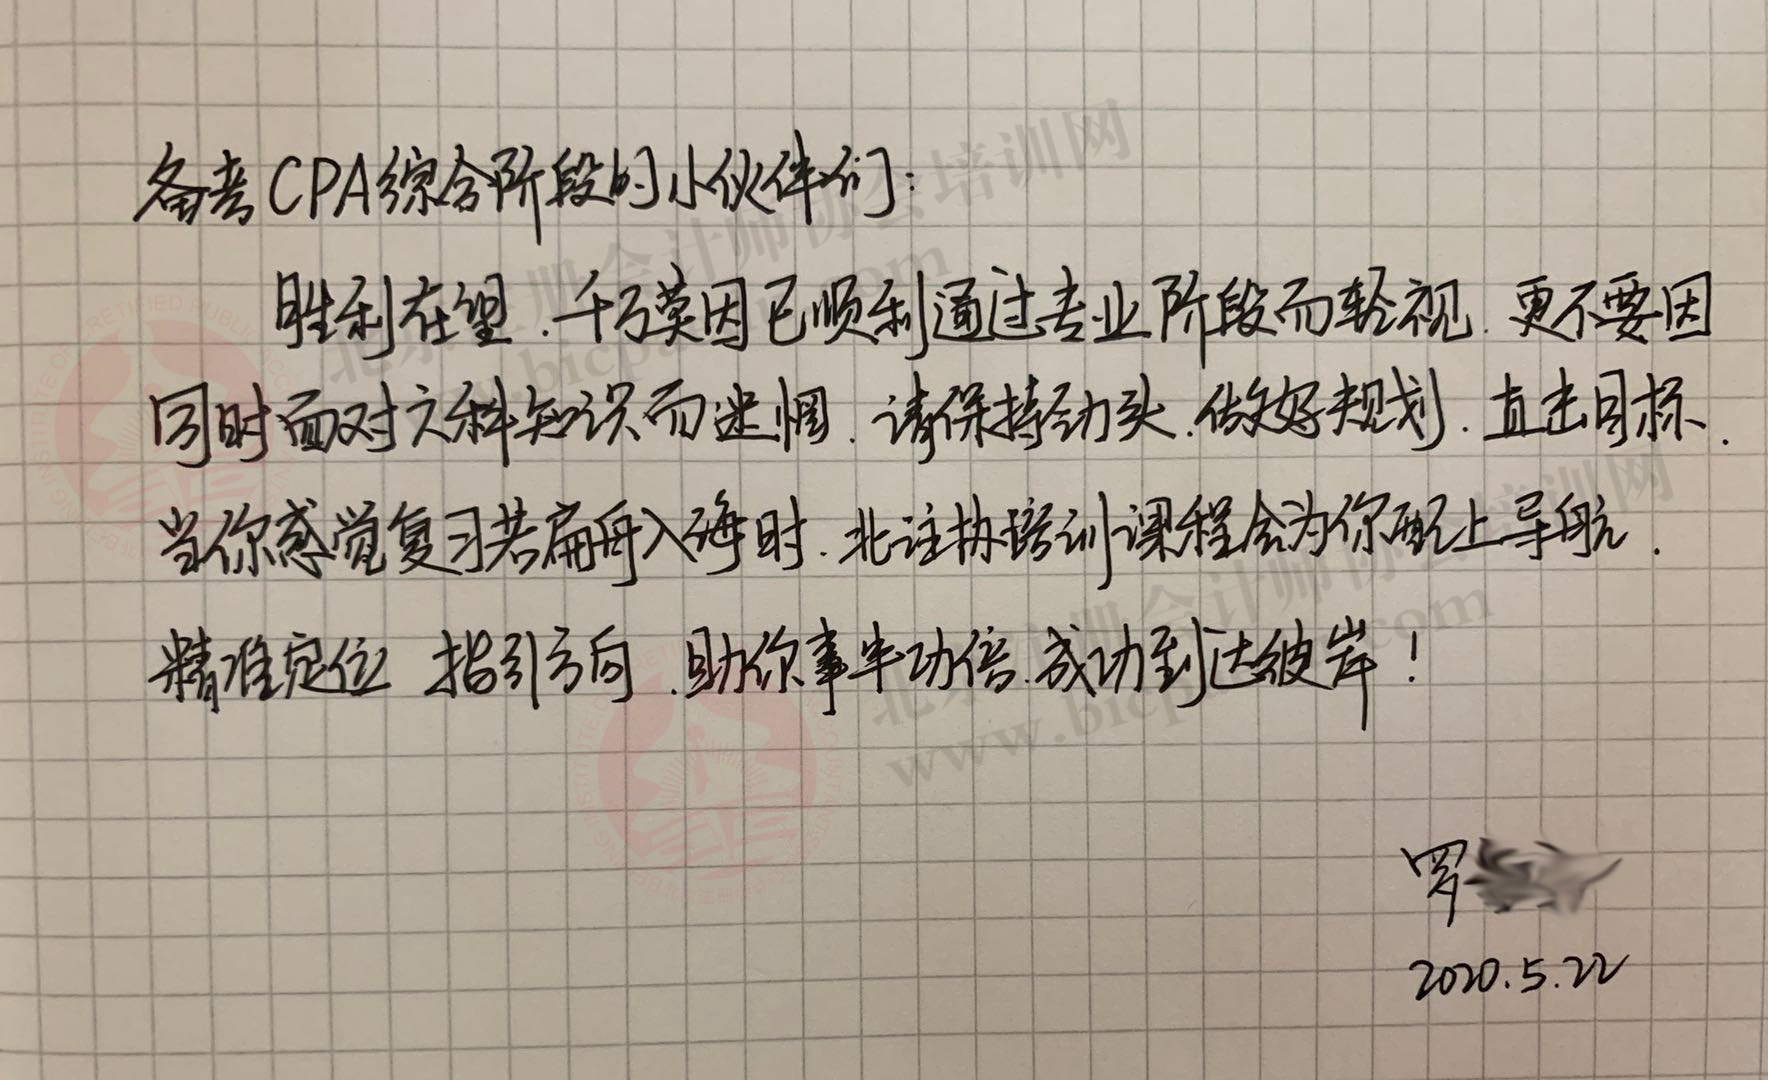 备考CPA综合阶段的小伙伴们:
胜利在望.千万莫因已顺利通过专业阶段而轻视.更不要因
同时面对六科知识而迷惘.请保持劲头.做好规划.直击目标.
当你感觉复习若扁舟入海时.北注协培训课程会为你配上导航.
精准定位 指引方向.助你事半功倍.成功到达彼岸!
罗
2020.5.22
北京注册会计师协会培训网
www.bicpa.com
北京注册会计师协会培训网
www.bicpa.com